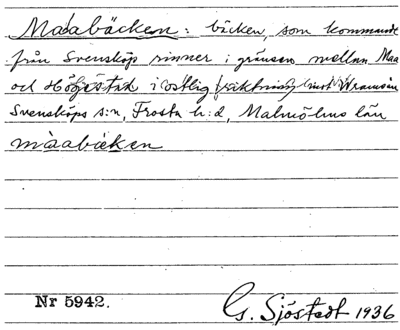 Maabäcken: bäcken, som kommande
från Svensköp rinner i gränsen mellan Maa
och Högestad i ostlig riktning mot
Svensköps s:n, Frosta h:d, Malmöhus län
màabäcken
Nr 5942.
G. Sjöstedt 1936